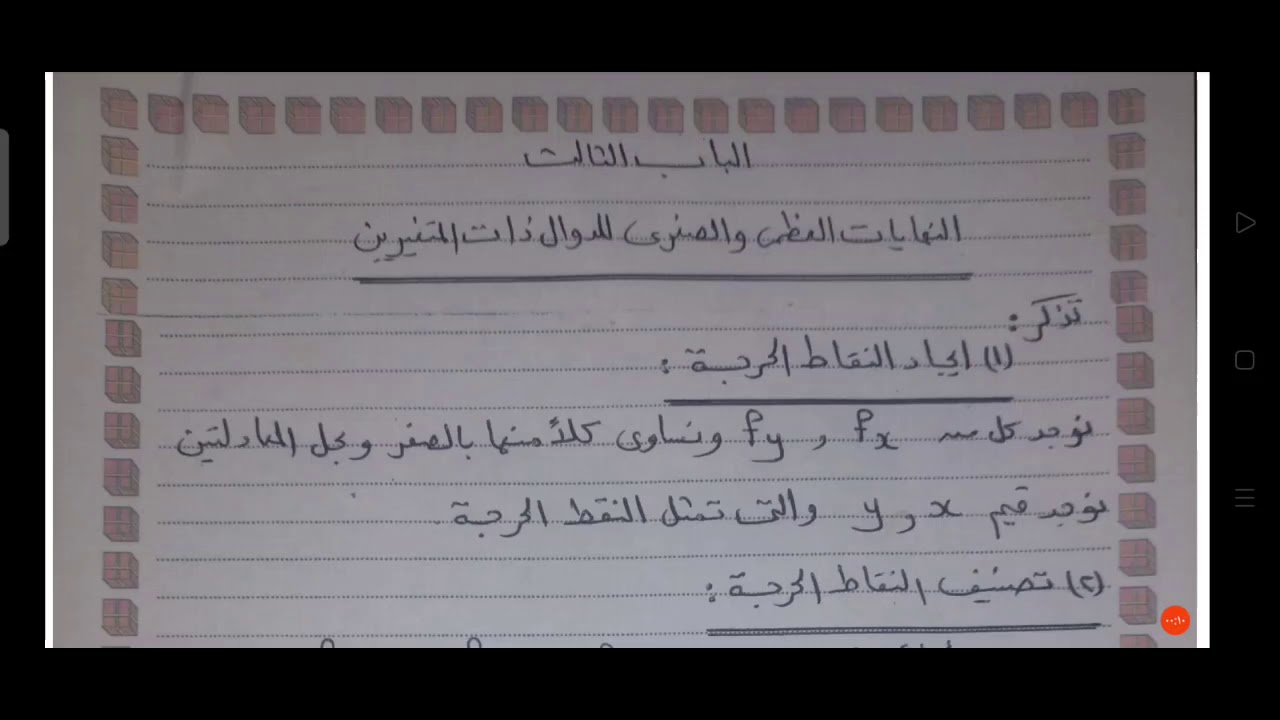 الباب الثالث
النهايات العظمى والصغرى للدوال ذات المتغيرين
تذكر:
(١) ايجاد النقاط الحرجة:
نوجد كل من fx و fy ونساوى كلاً منهما بالصفر وبحل المعادلتين
نوجد قيم x و y والتى تمثل النقط الحرجة.
(٢) تصنيف النقاط الحرجة: